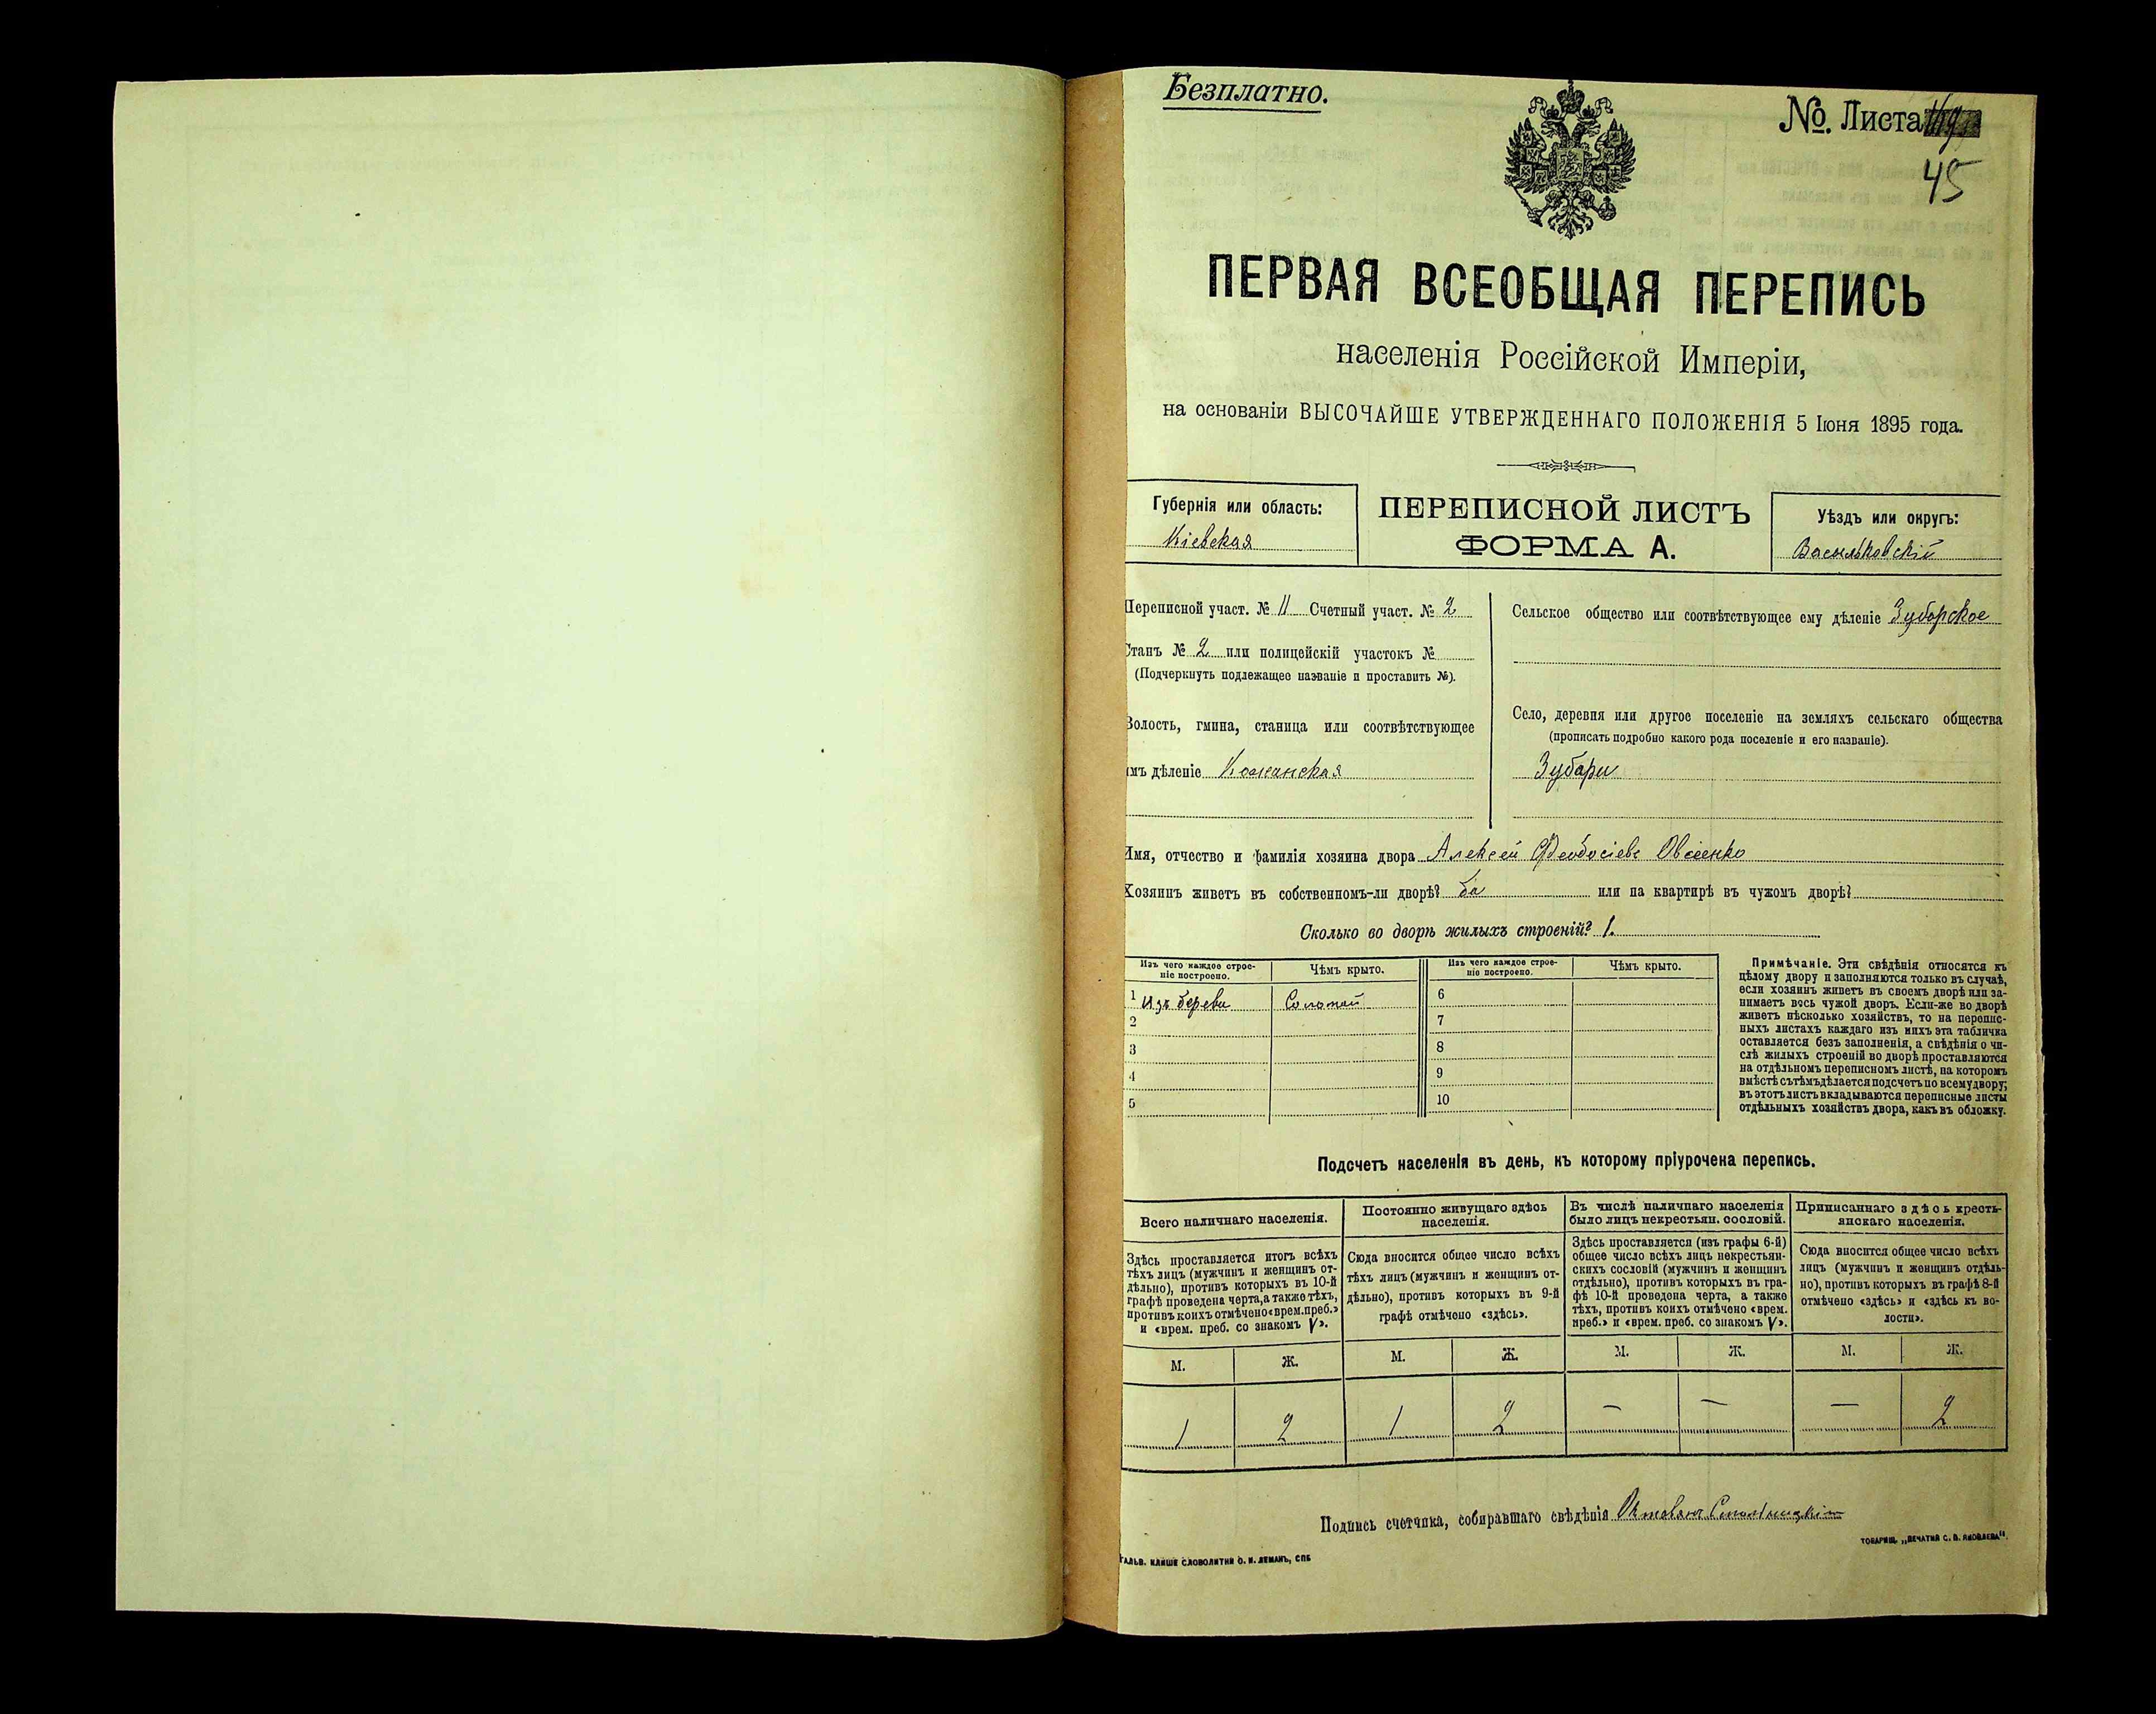 Безплатно.
№. Листа
45
ПЕРВАЯ ВСЕОБЩАЯ ПЕРЕПИСЬ
населенія Россійской Имперіи,
на основаніи ВЫСОЧАЙШЕ УТВЕРЖДЕННАГО ПОЛОЖЕНІЯ 5 Іюня 1895 года.
Губернія или область:
Кіевская
ПЕРЕПИСНОЙ ЛИСТЪ
ФОРМА А.
Уѣздъ или округъ:
Васильковскій
Переписной участ. № 11 Счетный участ. № 2
Станъ № 2 или полицейскій участокъ №
(Подчеркнуть подлежащее названіе и проставить №).
Волость, гмина, станица или соотвѣтствующее
имъ дѣленіе Кожанская
Сельское общество или соотвѣтствующее ему дѣленіе Зубарское
Село, деревня или другое поселеніе на земляхъ сельскаго общества
(прописать подробно какого рода поселеніе и его названіе).
Зубари
Имя, отчество и фамилія хозяина двора Алексей Феодосіевъ Овсіенко
Хозяинъ живетъ въ собственномъ-ли дворѣ? да или на квартирѣ въ чужомъ дворѣ?
Сколько во дворѣ жилыхъ строеній? 1.
Изъ чего каждое строе-
ніе построено.
Чѣмъ крыто.
Изъ чего каждое строе-
ніе построено.
Чѣмъ крыто.
1 Изъ дерева Соломой 6
2 7
3 8
4 9
5 10
Примѣчаніе. Эти свѣдѣнія относятся къ
цѣлому двору и заполняются только въ случаѣ,
если хозяинъ живетъ въ своемъ дворѣ или за-
нимаетъ весь чужой дворъ. Если-же во дворѣ
живетъ нѣсколько хозяйствъ, то на перепис-
ныхъ листахъ каждаго изъ нихъ эта табличка
оставляется безъ заполненія, а свѣдѣнія о чи-
слѣ жилыхъ строеній во дворѣ проставляются
на отдѣльномъ переписномъ листѣ, на которомъ
вмѣстѣ съ тѣмъ дѣлается подсчетъ по всему двору;
въ этотъ листъ вкладываются переписные листы
отдѣльныхъ хозяйствъ двора, какъ въ обложку.
Подсчетъ населенія въ день, къ которому пріурочена перепись.
Всего наличнаго населенія.
Здѣсь проставляется итогъ всѣхъ
тѣхъ лицъ (мужчинъ и женщинъ от-
дѣльно), противъ которыхъ въ 10-й
графѣ проведена черта, а также тѣхъ,
противъ коихъ отмѣчено «врем. преб.»
и «врем. преб. со знакомъ V».
Постоянно живущаго здѣсь
населенія.
Сюда вносится общее число всѣхъ
тѣхъ лицъ (мужчинъ и женщинъ от-
дѣльно), противъ которыхъ въ 9-й
графѣ отмѣчено «здѣсь».
Въ числѣ наличнаго населенія
было лицъ некрестьян. сословій.
Здѣсь проставляется (изъ графы 6-й)
общее число всѣхъ лицъ некрестьян-
скихъ сословій (мужчинъ и женщинъ
отдѣльно), противъ которыхъ въ гра-
фѣ 10-й проведена черта, а также
тѣхъ, противъ коихъ отмѣчено «врем.
преб.» и «врем. преб. со знакомъ V».
Приписаннаго здѣсь кресть-
янскаго населенія.
Сюда вносится общее число всѣхъ
лицъ (мужчинъ и женщинъ отдѣль-
но), противъ которыхъ въ графѣ 8-й
отмѣчено «здѣсь» и «здѣсь къ во-
лости».
М. Ж. М. Ж. М. Ж. М. Ж.
1 2 1 2 — — — 2
Подпись счетчика, собиравшаго свѣдѣнія
ГАЛЬВ. КЛИШЕ СЛОВОЛИТНИ О. И. ЛЕМАНЪ, СПБ
ТОВАРИЩ. „ПЕЧАТНЯ С. П. ЯКОВЛЕВА“.